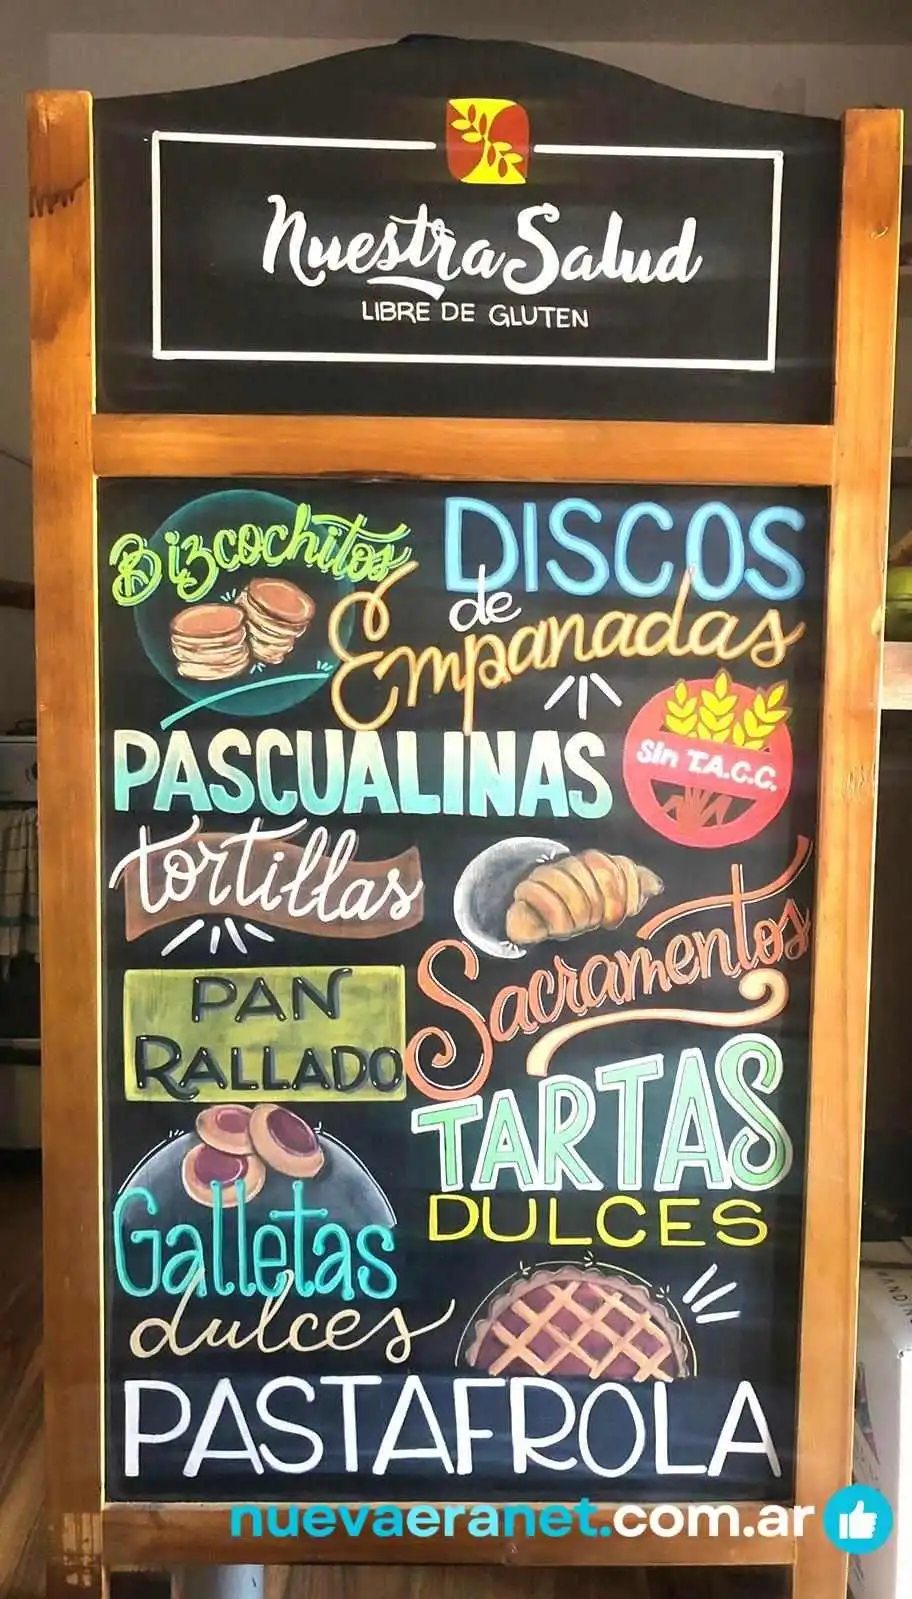 Nuestra Salud
LIBRE DE GLUTEN
Bizcochitos
DISCOS
de
Empanadas
PASCUALINAS
Sin T.A.C.C.
tortillas
Sacramentos
PAN
RALLADO
TARTAS
DULCES
Galletas
dulces
PASTAFROLA
nuevaeranet.com.ar